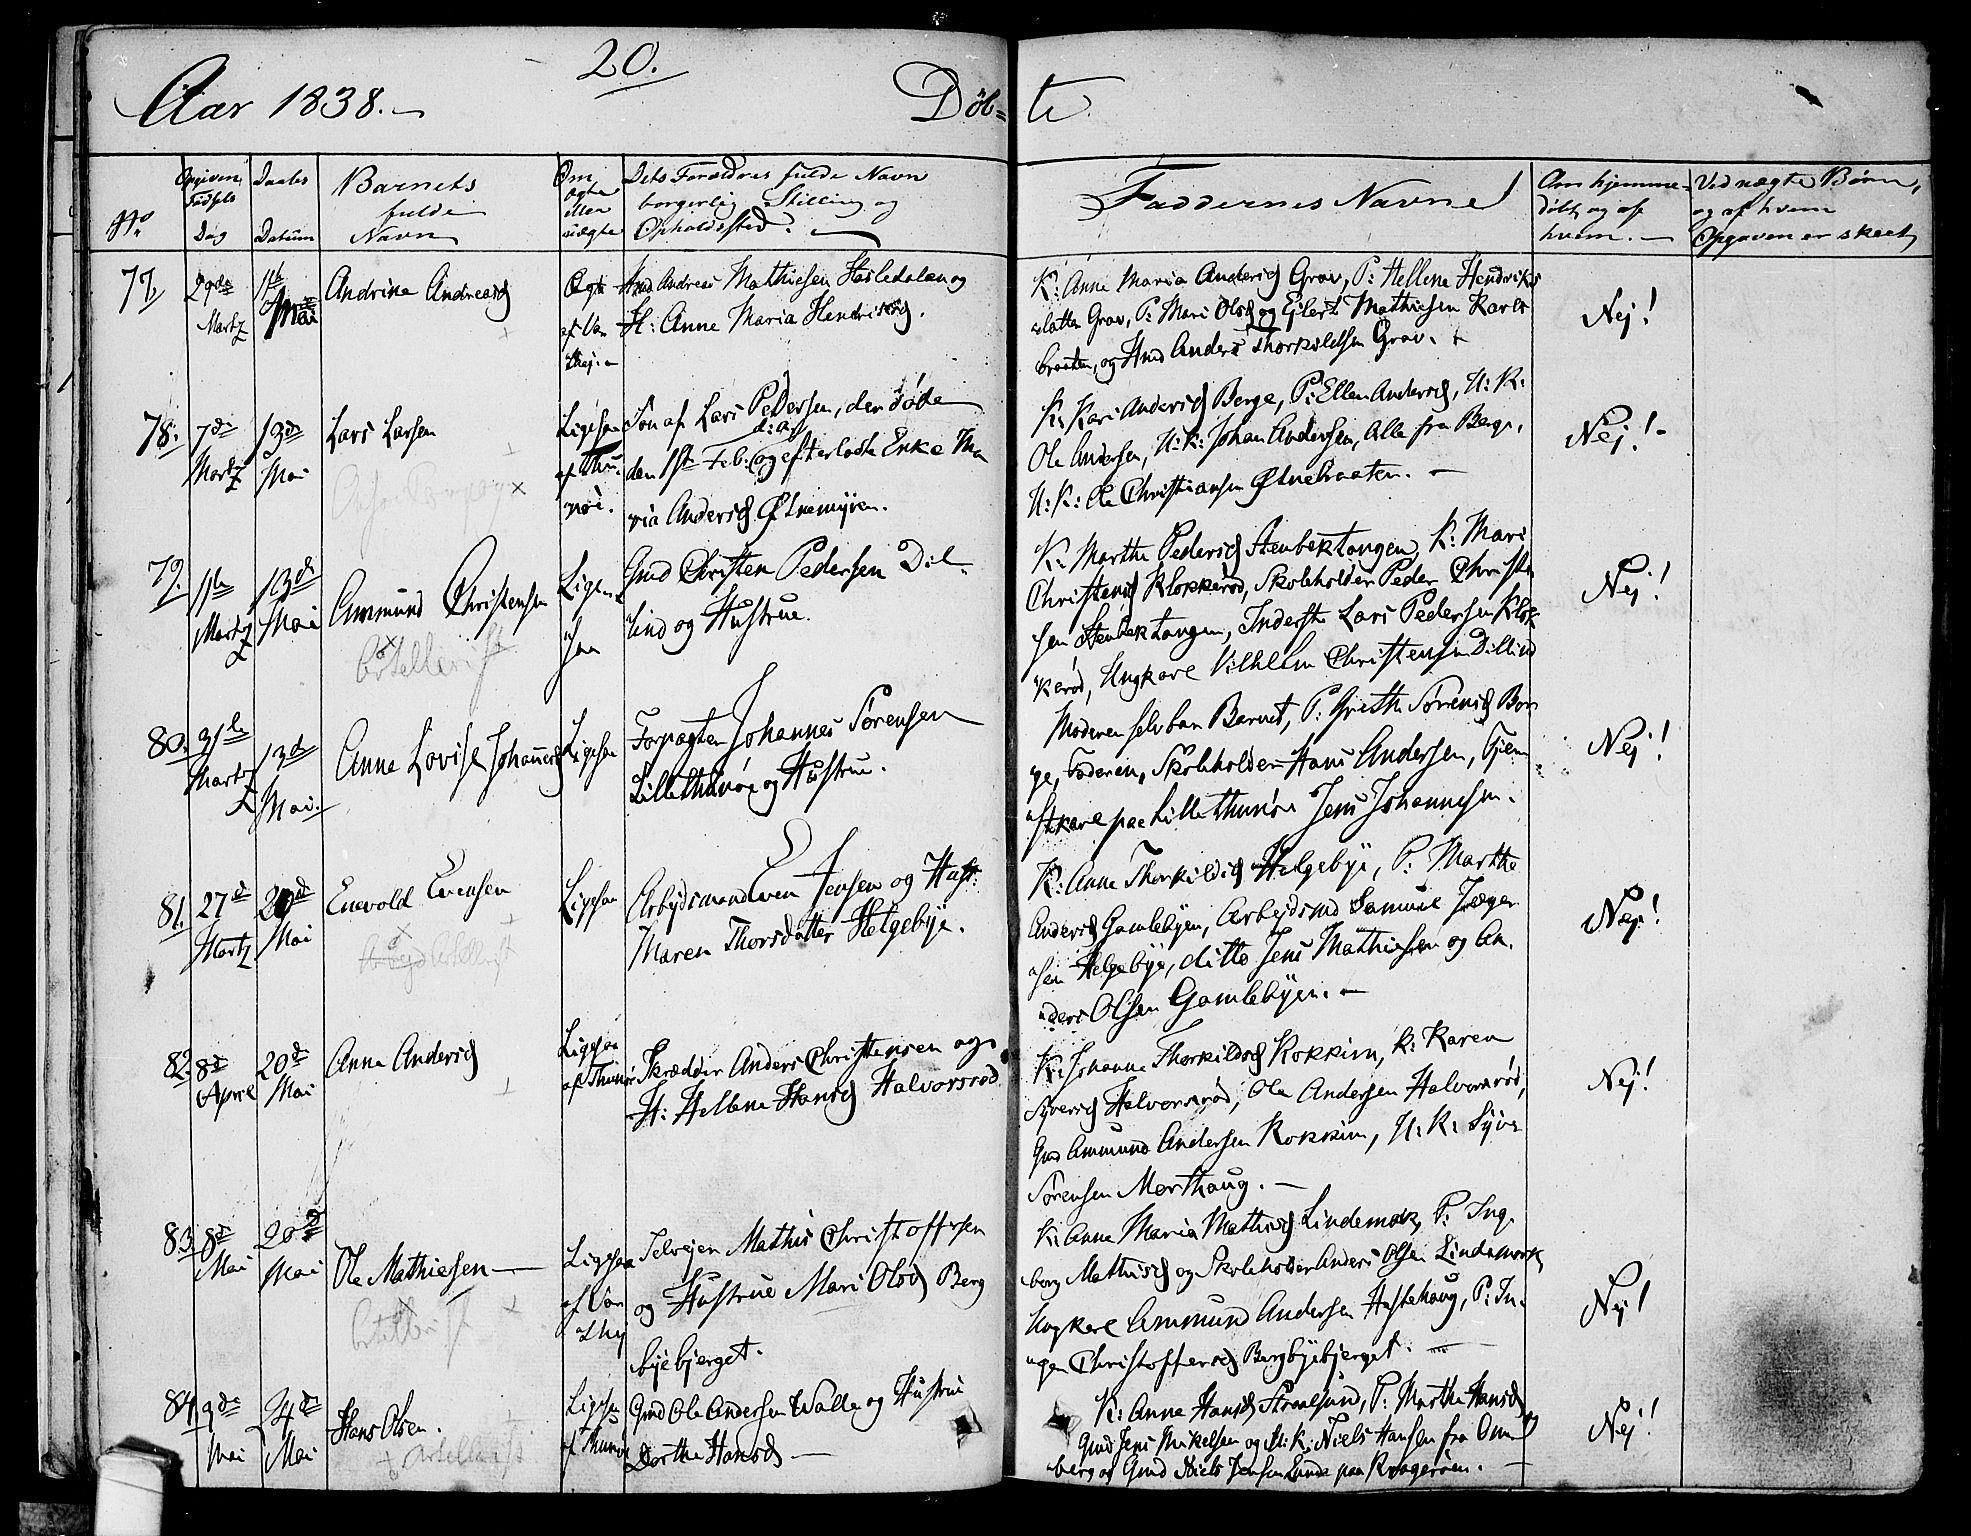 20.
Aar 1838.
Døb=
te.
No
Opgiven Fødsels Dag
Daabs Datum
Barnets fulde Navn
Om ægte eller uægte
Dets Forældres fulde Navn
borgerlig Stilling og
Opholdssted.
Faddernes Navne
Om hjemme-
døbt, og af
hvem.
Ved uægte Børn,
og af hvem
Opgaven er skeet
77.
29de Martz
Mai
Andrine Andreasd
Ægte af Var
Andreas Mathiesen Hasledalen og
H: Anne Maria Hendriksd.
K: Anne Maria Andersd Grav, P: Hellene Hendriks
datter Grav, P: Mari Olsd og Ejlert Mathiesen Karls
braaten, og Hmd Anders Thorkildsen Grav.
Nej!
78.
7de Martz
13de Mai
Lars Larsen
Ligesaa af Thunøe.
Søn af Lars Pedersen, der døde
d: a:
den 1ste Feb: og efterladte Enke Ma
ria Andersd Østnemyren.
K: Kari Andersd Berge, P: Ellen Andersd, U: K:
Ole Andersen, U: K: Johan Andersen, Alle fra Berge,
U: K: Ole Christiansen Østnebraaten.
Nej!
79.
11te Martz
13de Mai
Ammund Christensen
Artellerist
Ligesaa
Gmd Christen Pedersen Dil-
lind og Hustrue.
K: Marthe Pedersd Stenbektangen, K: Mari
Christensd Klokkerød, Skoleholder Peder Christen
sen Stenbektangen, Inderste Lars Pedersen Klok
kerød, Ungkarl Vilhelm Christensen Dillind
Nej!
80.
31te Martz
13de Mai.
Anne Lovise Johannesd
Ligesaa
Forpagter Johannes Sørensen
Lille Thunøe og Hustrue.
Moderen selv bar Barnet, P: Grethe Sørensd Bor
ge, Faderen, Skoleholder Hans Andersen, Tjene
stekarl paa Lille Thunøe Jens Johannesen.
Nej!
81.
27de Martz
20de Mai
Enevold Evensen
Artellerist
Ligesaa
Arbejdsmand Even Jensen og Hust:
Maren Thorsdatter Helgebye.
K: Anne Thorkildsd Helgebye, P: Marthe
Andersd Gamlebyen, Arbejdsmd Samuel Jæger
sen Helgebye, ditto Jens Mathiesen og An-
ders Olsen Gamlebyen.
Nej!
82.
8de April
20de Mai
Anne Andersd
Ligesaa af Thunøe
Skrædder Anders Christensen og
H: Hellene Hansd Halvorsrød
K: Johanne Thorkildsd Kokkim, K: Karen
Syversd Halvorsrød, Ole Andersen Halvorsrød,
Gmd Ammund Andersen Kokkim, U: K: Syver
Sørensen Morthaug.
Nej!
83.
8de Mai
20de Mai
Ole Mathiesen
Artellerist
Ligesaa af Var
Selvejer Mathis Christoffersen
og Hustrue Mari Olsd Berg
byebjerget.
K: Anne Maria Mathisd Lindemark, P: Inge
borg Mathisd og Skoleholder Anders Olsen Lindemark
Ungkarl Ammund Andersen Haslehaug, P: In-
ger Christoffersd Bergbyebjerget.
Nej!
84.
9de Mai
24de Mai
Hans Olsen.
Artellerist
Ligesaa af Thunøe
Gmd Ole Andersen Walle og Hustrue
Dorthe Hansd
K: Anne Hansd Straalsund, P: Marthe Hansd
Gmd Jens Mikelsen og U: K: Niels Hansen fra Om
berg og Gmd Niels Jensen Lunde paa Kragerøen.
Nej!